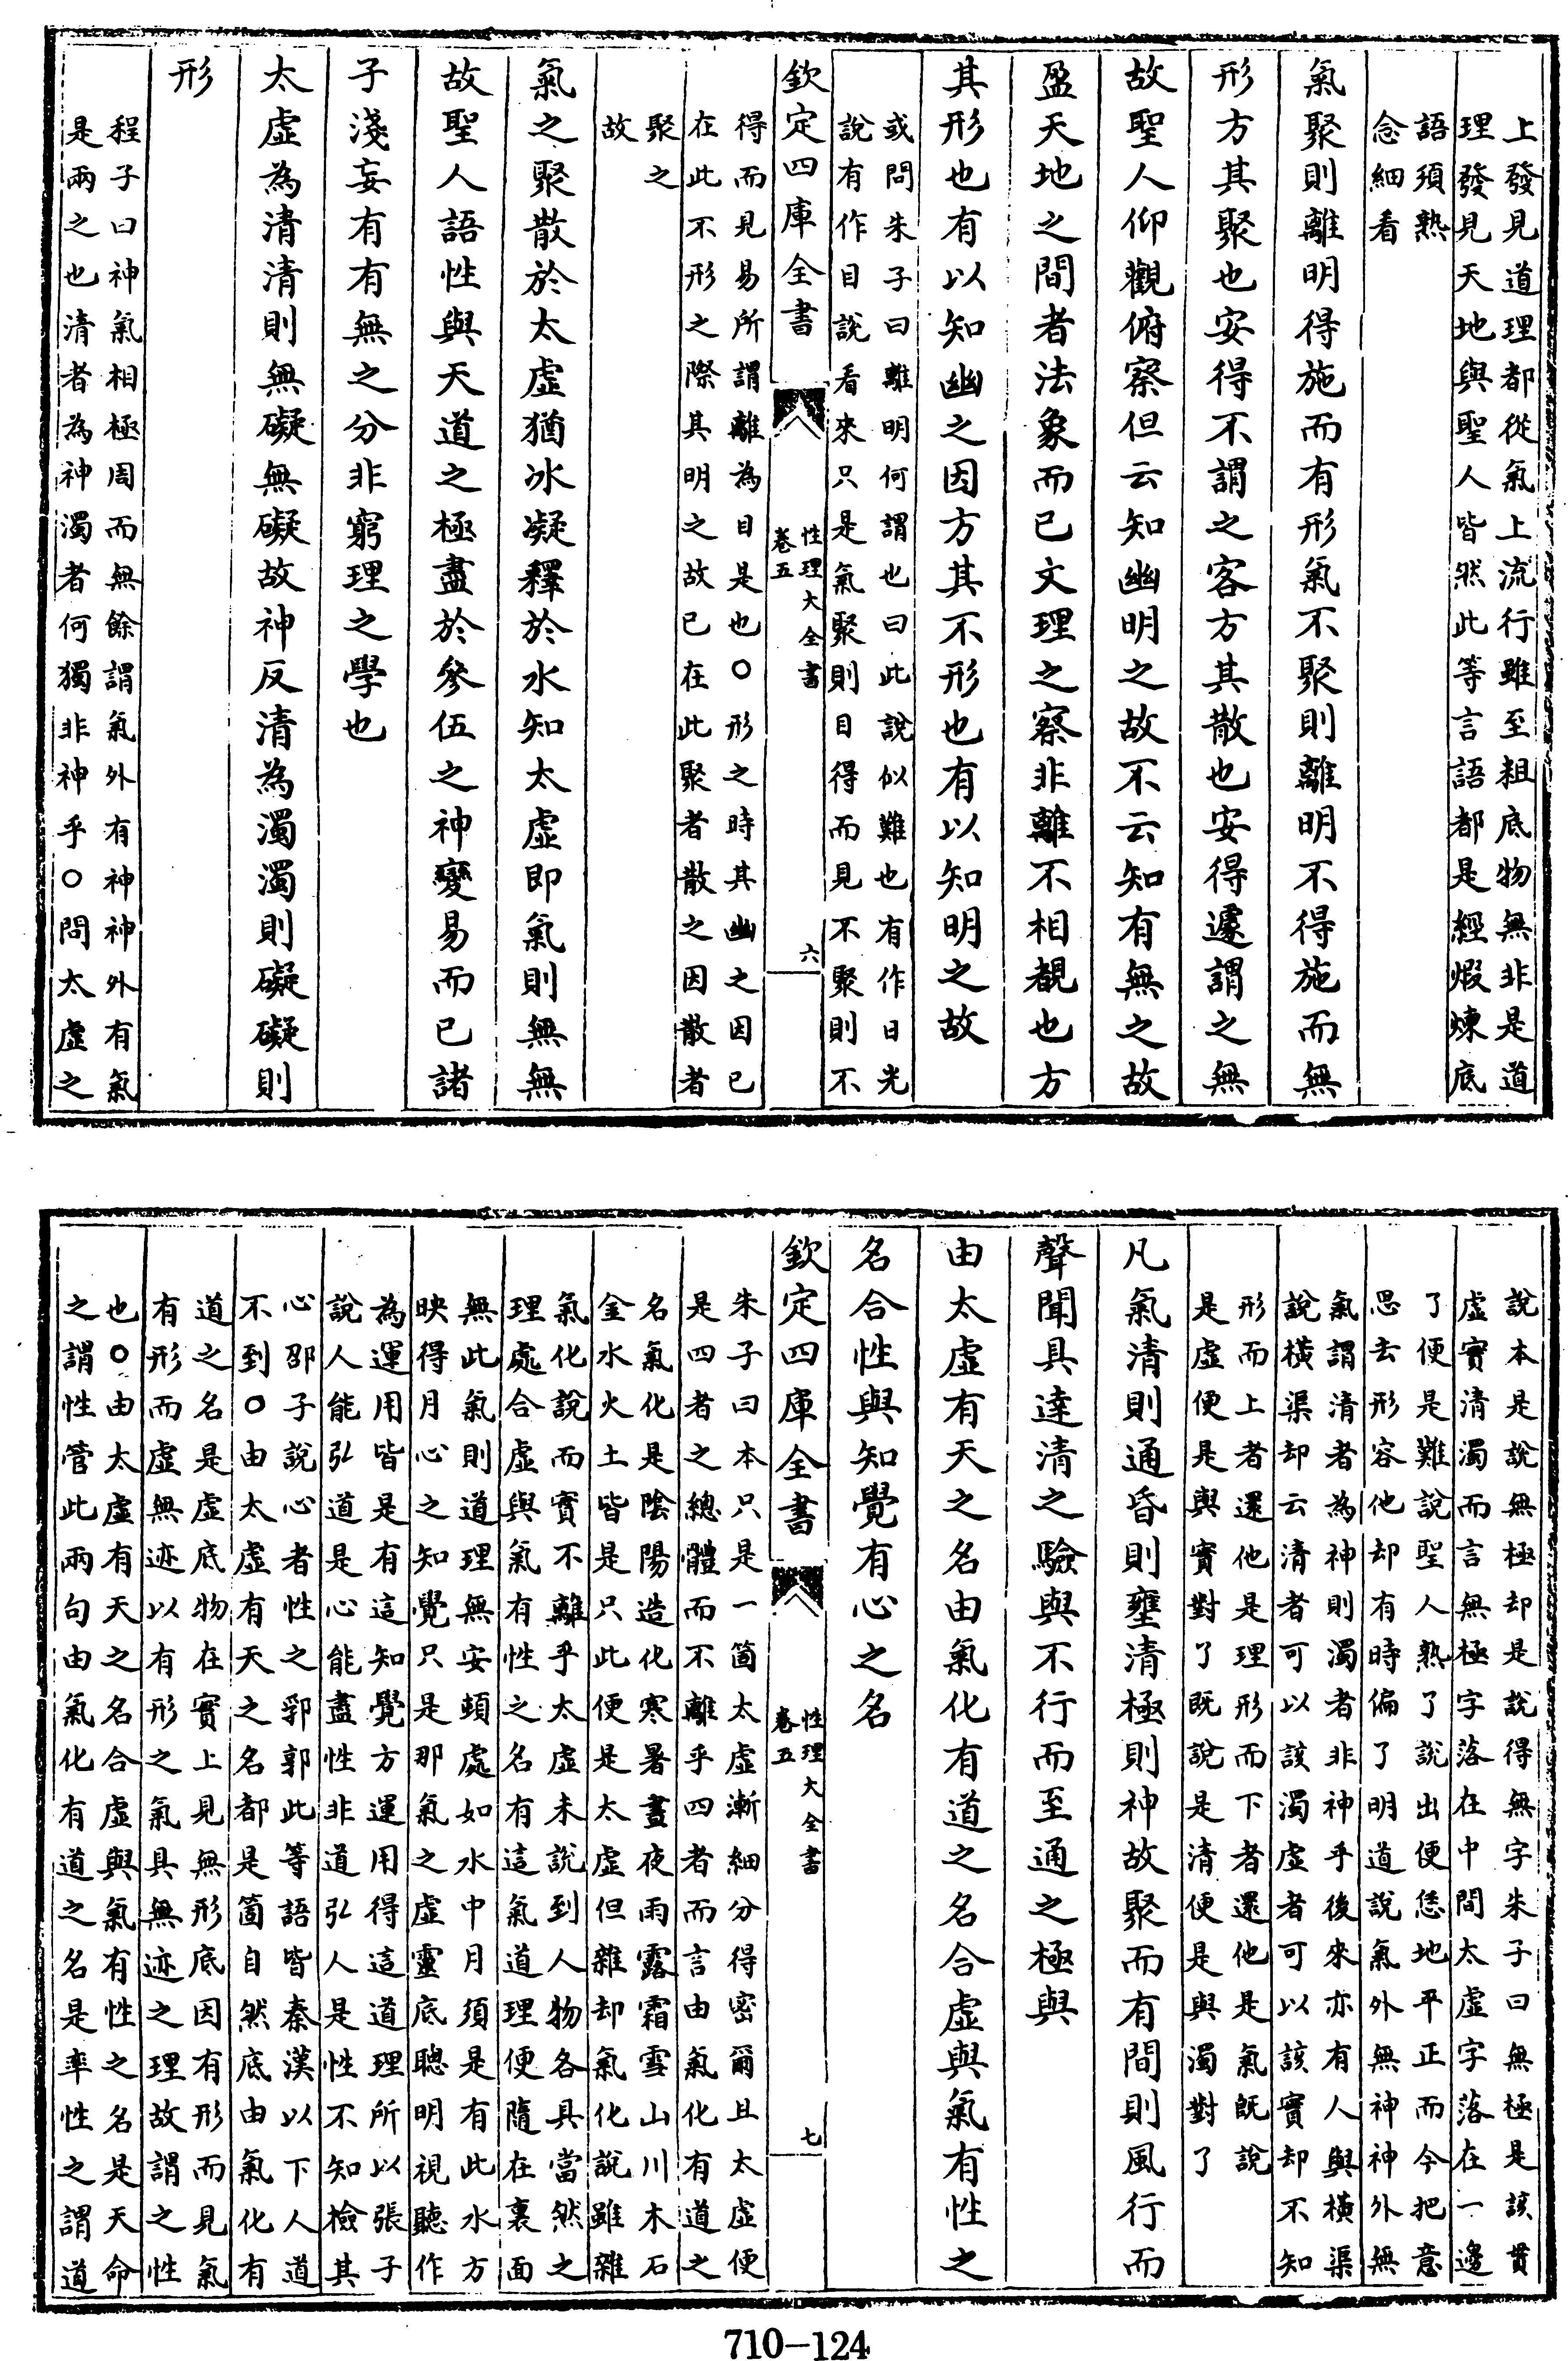 上發見道理都從氣上流行雖至粗底物無非是道
理發見天地與聖人皆然此等言語都是經煅煉底
語須熟
念細看
氣聚則離明得施而有形氣不聚則離明不得施而無
形方其聚也安得不謂之客方其散也安得遽謂之無
故聖人仰觀俯察但云知幽明之故不云知有無之故
盈天地之間者法象而已文理之察非離不相覩也方
其形也有以知幽之因方其不形也有以知明之故
或問朱子曰離明何謂也曰此說似難也有作日光
說有作目說看來只是氣聚則目得而見不聚則不
欽定四庫全書
性理大全書
卷五
六
得而見易所謂離為目是也○形之時其幽之因已
在此不形之際其明之故已在此聚者散之因散者
聚之
故
氣之聚散於太虛猶冰凝釋於水知太虛即氣則無無
故聖人語性與天道之極盡於參伍之神變易而已諸
子淺妄有有無之分非窮理之學也
太虛為清清則無礙無礙故神反清為濁濁則礙礙則
形
程子曰神氣相極周而無餘謂氣外有神神外有氣
是兩之也清者為神濁者何獨非神乎○問太虛之
說本是說無極却是說得無字朱子曰無極是該貫
虛實清濁而言無極字落在中間太虛字落在一邊
了便是難說聖人熟了說出便恁地平正而今把意
思去形容他却有時偏了明道說氣外無神神外無
氣謂清者為神則濁者非神乎後來亦有人與橫渠
說橫渠却云清者可以該濁虛者可以該實却不知
形而上者還他是理形而下者還他是氣既說
是虛便是與實對了既說是清便是與濁對了
凡氣清則通昏則壅清極則神故聚而有間則風行而
聲聞具達清之驗與不行而至通之極與
由太虛有天之名由氣化有道之名合虛與氣有性之
名合性與知覺有心之名
欽定四庫全書
性理大全書
卷五
七
朱子曰本只是一箇太虛漸細分得密爾且太虛便
是四者之總體而不離乎四者而言由氣化有道之
名氣化是陰陽造化寒暑晝夜雨露霜雪山川木石
金水火土皆是只此便是太虛但雜却氣化說雖雜
氣化說而實不離乎太虛未說到人物各具當然之
理處合虛與氣有性之名有這氣道理便隨在裏面
無此氣則道理無安頓處如水中月須是有此水方
映得月心之知覺只是那氣之虛靈底聰明視聽作
為運用皆是有這知覺方運用得這道理所以張子
說人能弘道是心能盡性非道弘人是性不知檢其
心邵子說心者性之郛郭此等語皆秦漢以下人道
不到○由太虛有天之名都是箇自然底由氣化有
道之名是虛底物在實上見無形底因有形而見氣
有形而虛無迹以有形之氣具無迹之理故謂之性
也○由太虛有天之名合虛與氣有性之名是天命
之謂性管此兩句由氣化有道之名是率性之謂道
710-124